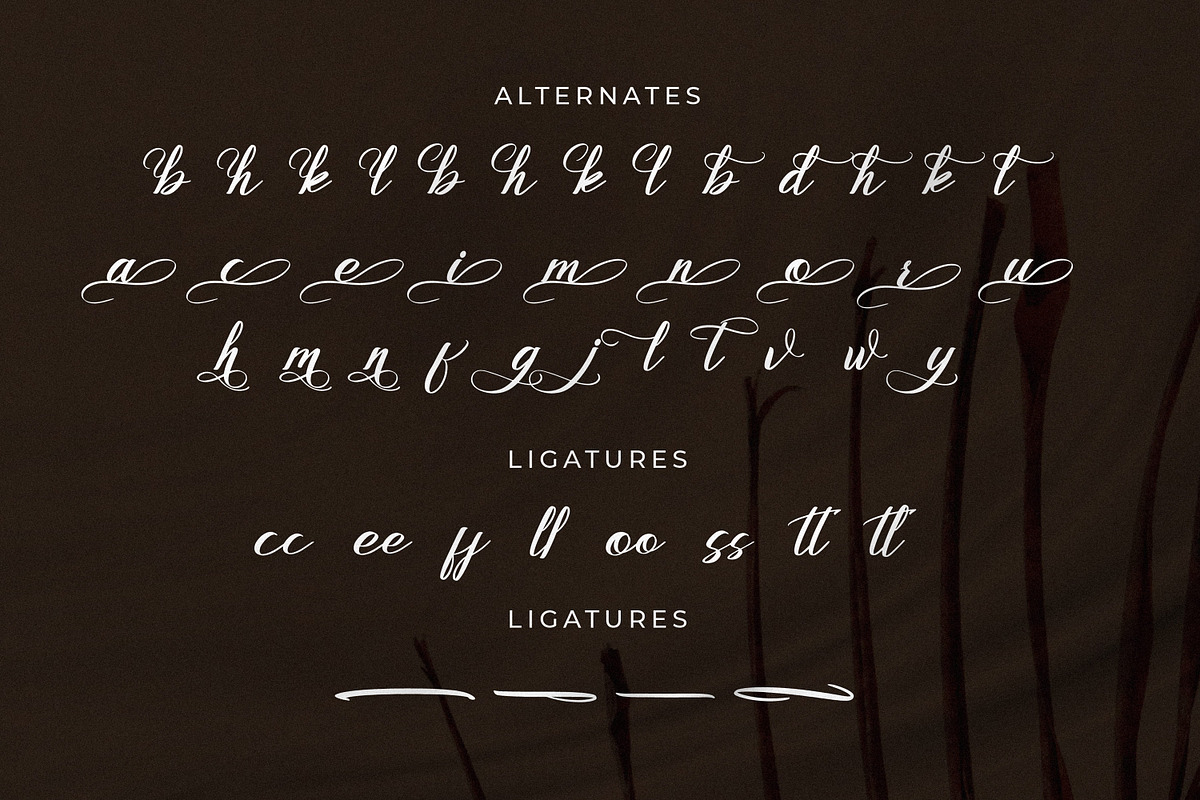 ALTERNATES
b h k l b h k l b d h k t
a c e i m n o r u
h m n f g j l t v w y
LIGATURES
cc ee ff ll oo ss tt tl
LIGATURES